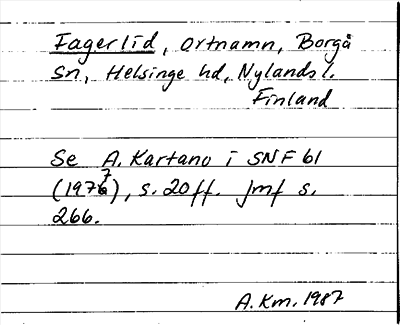 Fagerlid, ortnamn, Borgå
sn, Helsinge hd, Nylands l.
Finland
Se A. Kartano i SNF 61
(1977), s. 20 ff. jmf s.
266.
A. Km. 1987